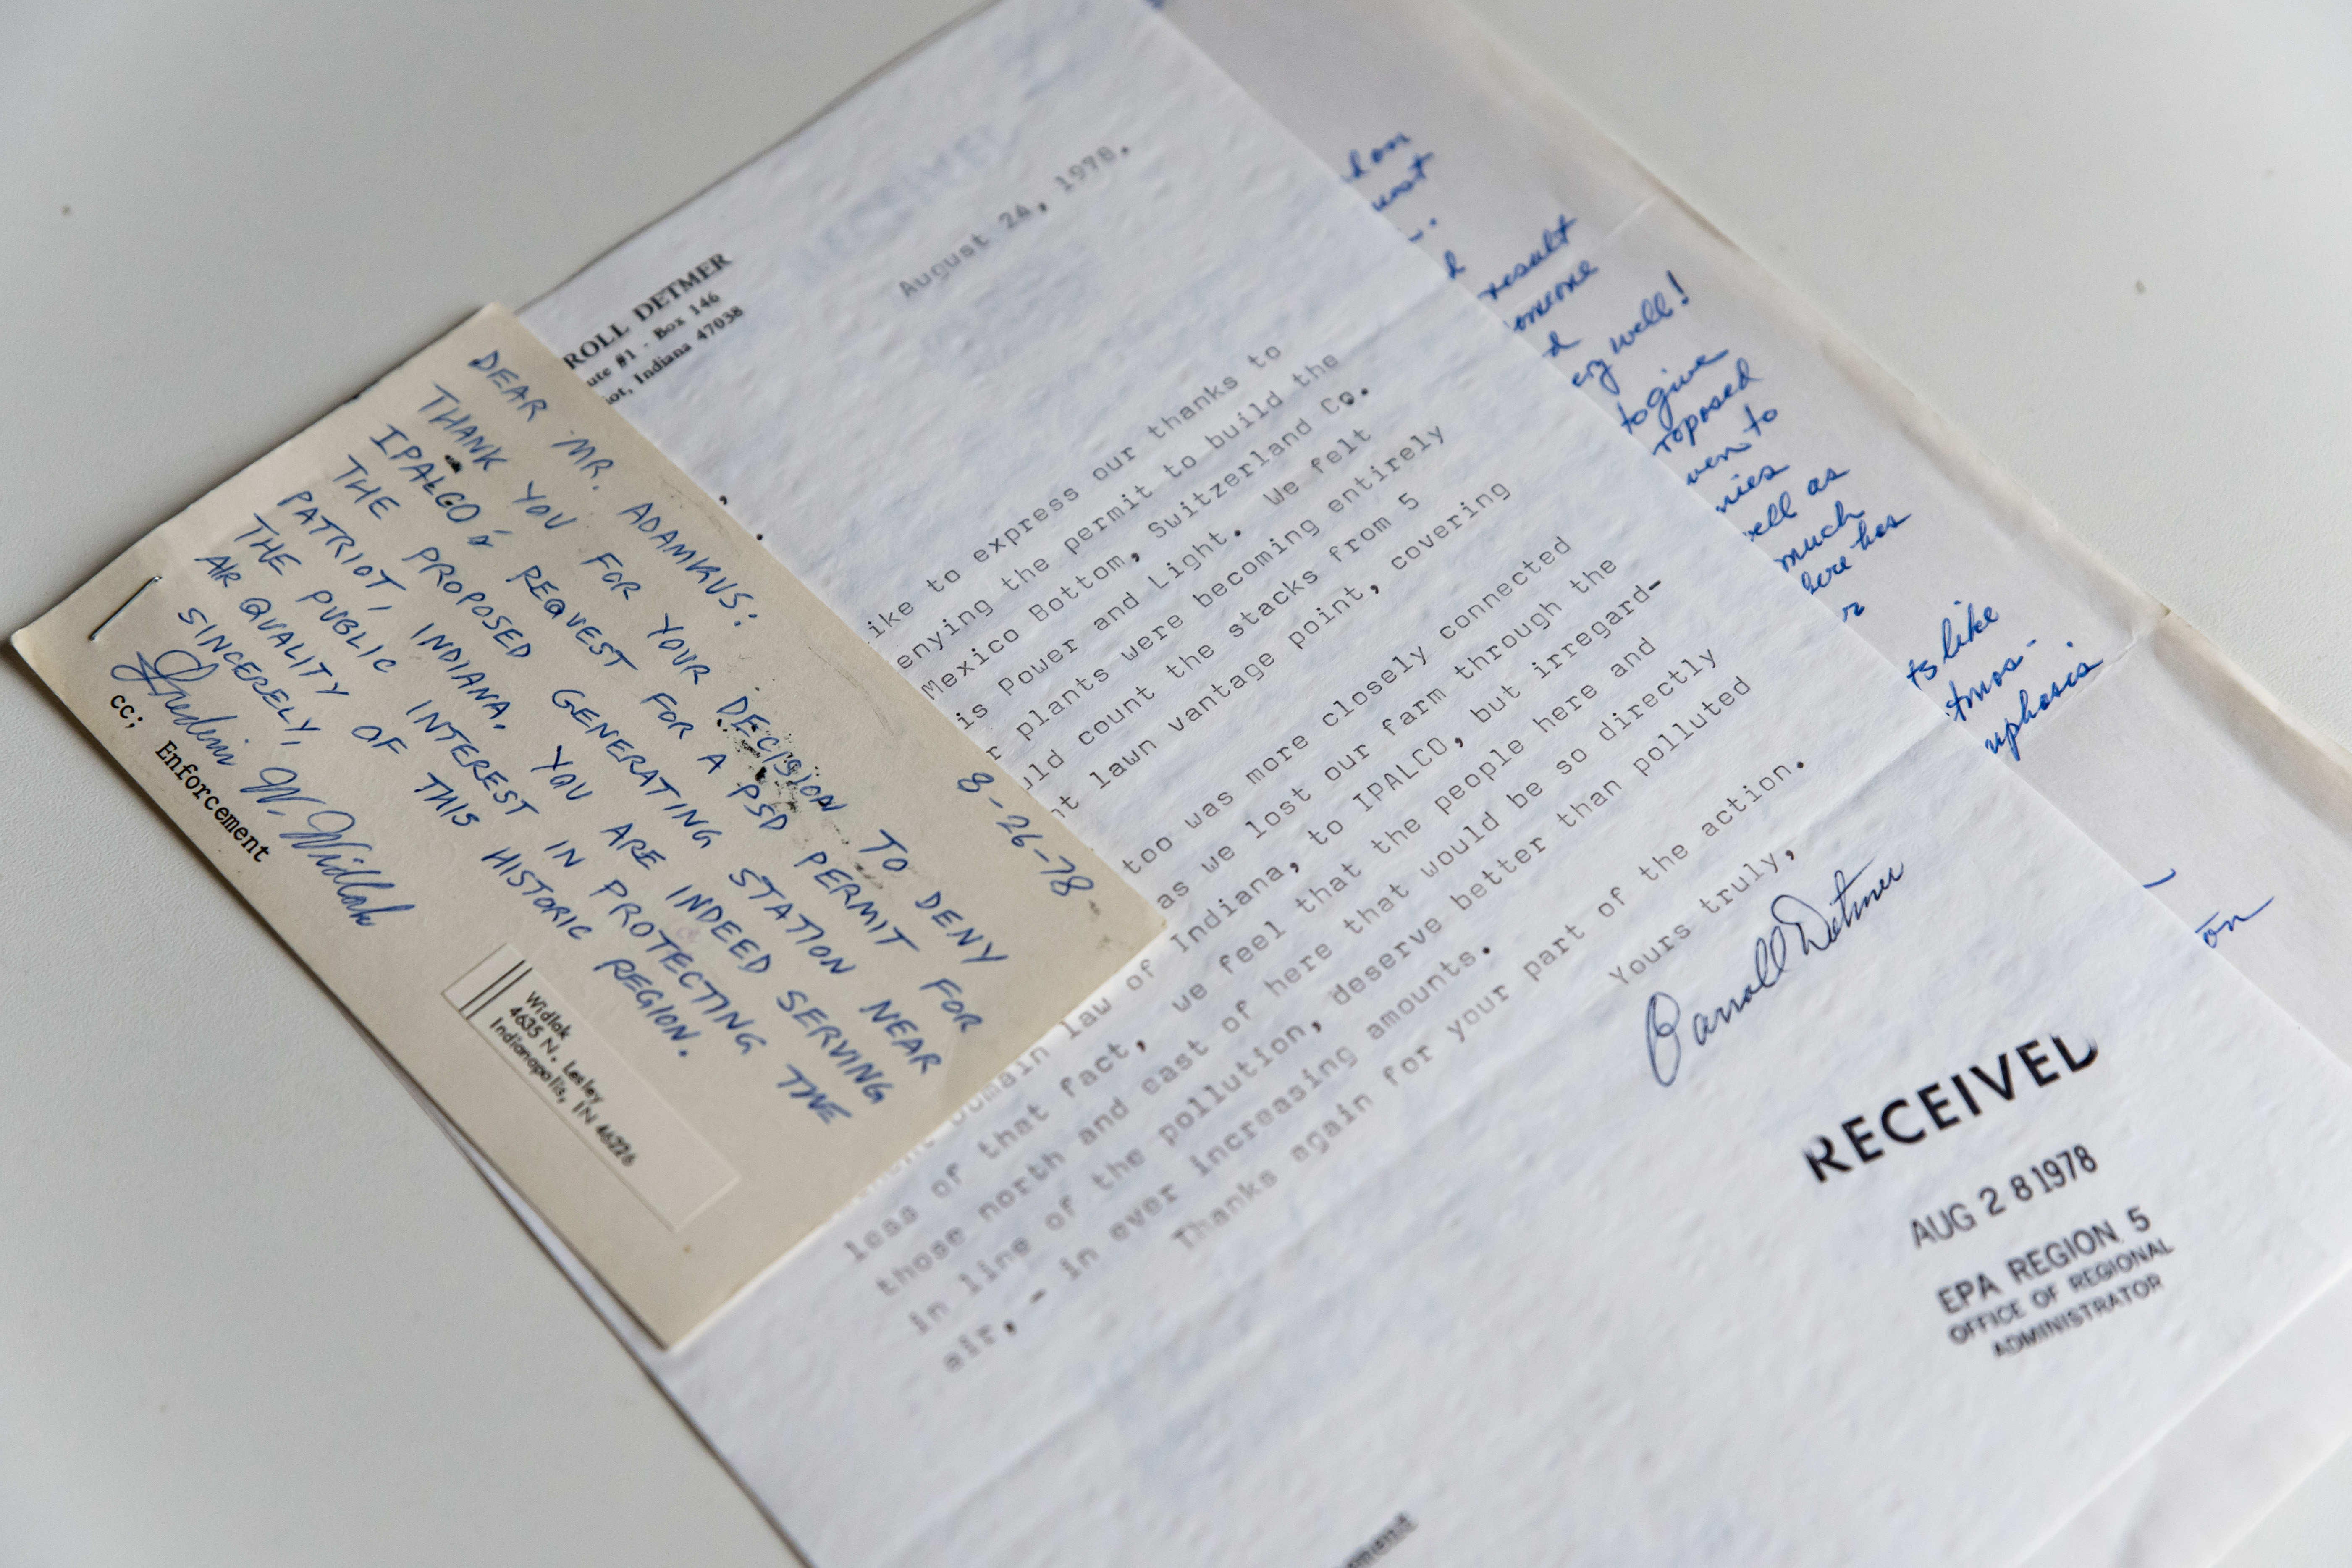 8-26-78
DEAR MR. ADAMKUS:
THANK YOU FOR YOUR DECISION TO DENY
IPALCO'S REQUEST FOR A PSD PERMIT FOR
THE PROPOSED GENERATING STATION NEAR
PATRIOT, INDIANA. YOU ARE INDEED SERVING
THE PUBLIC INTEREST IN PROTECTING THE
AIR QUALITY OF THIS HISTORIC REGION.
SINCERELY,
W. Widlak
cc; Enforcement
Widlak
4635 N. Lesley
Indianapolis, IN 46226
ROLL DETMER
ute #1 - Box 146
iot, Indiana 47038
August 24, 1978.
ike to express our thanks to
enying the permit to build the
Mexico Bottom, Switzerland Co.
is Power and Light. We felt
r plants were becoming entirely
uld count the stacks from 5
nt lawn vantage point, covering
too was more closely connected
as we lost our farm through the
Domain law of Indiana, to IPALCO, but irregard-
less of that fact, we feel that the people here and
those north and east of here that would be so directly
in line of the pollution, deserve better than polluted
air,- in ever increasing amounts.
Thanks again for your part of the action.
Yours truly,
Carroll Detmer
RECEIVED
AUG 28 1978
EPA REGION 5
OFFICE OF REGIONAL
ADMINISTRATOR
result
omeone
d
ery well!
to give
roposed
ven to
nies
well as
much
here has
r
ts like
tmos-
uphasis
on